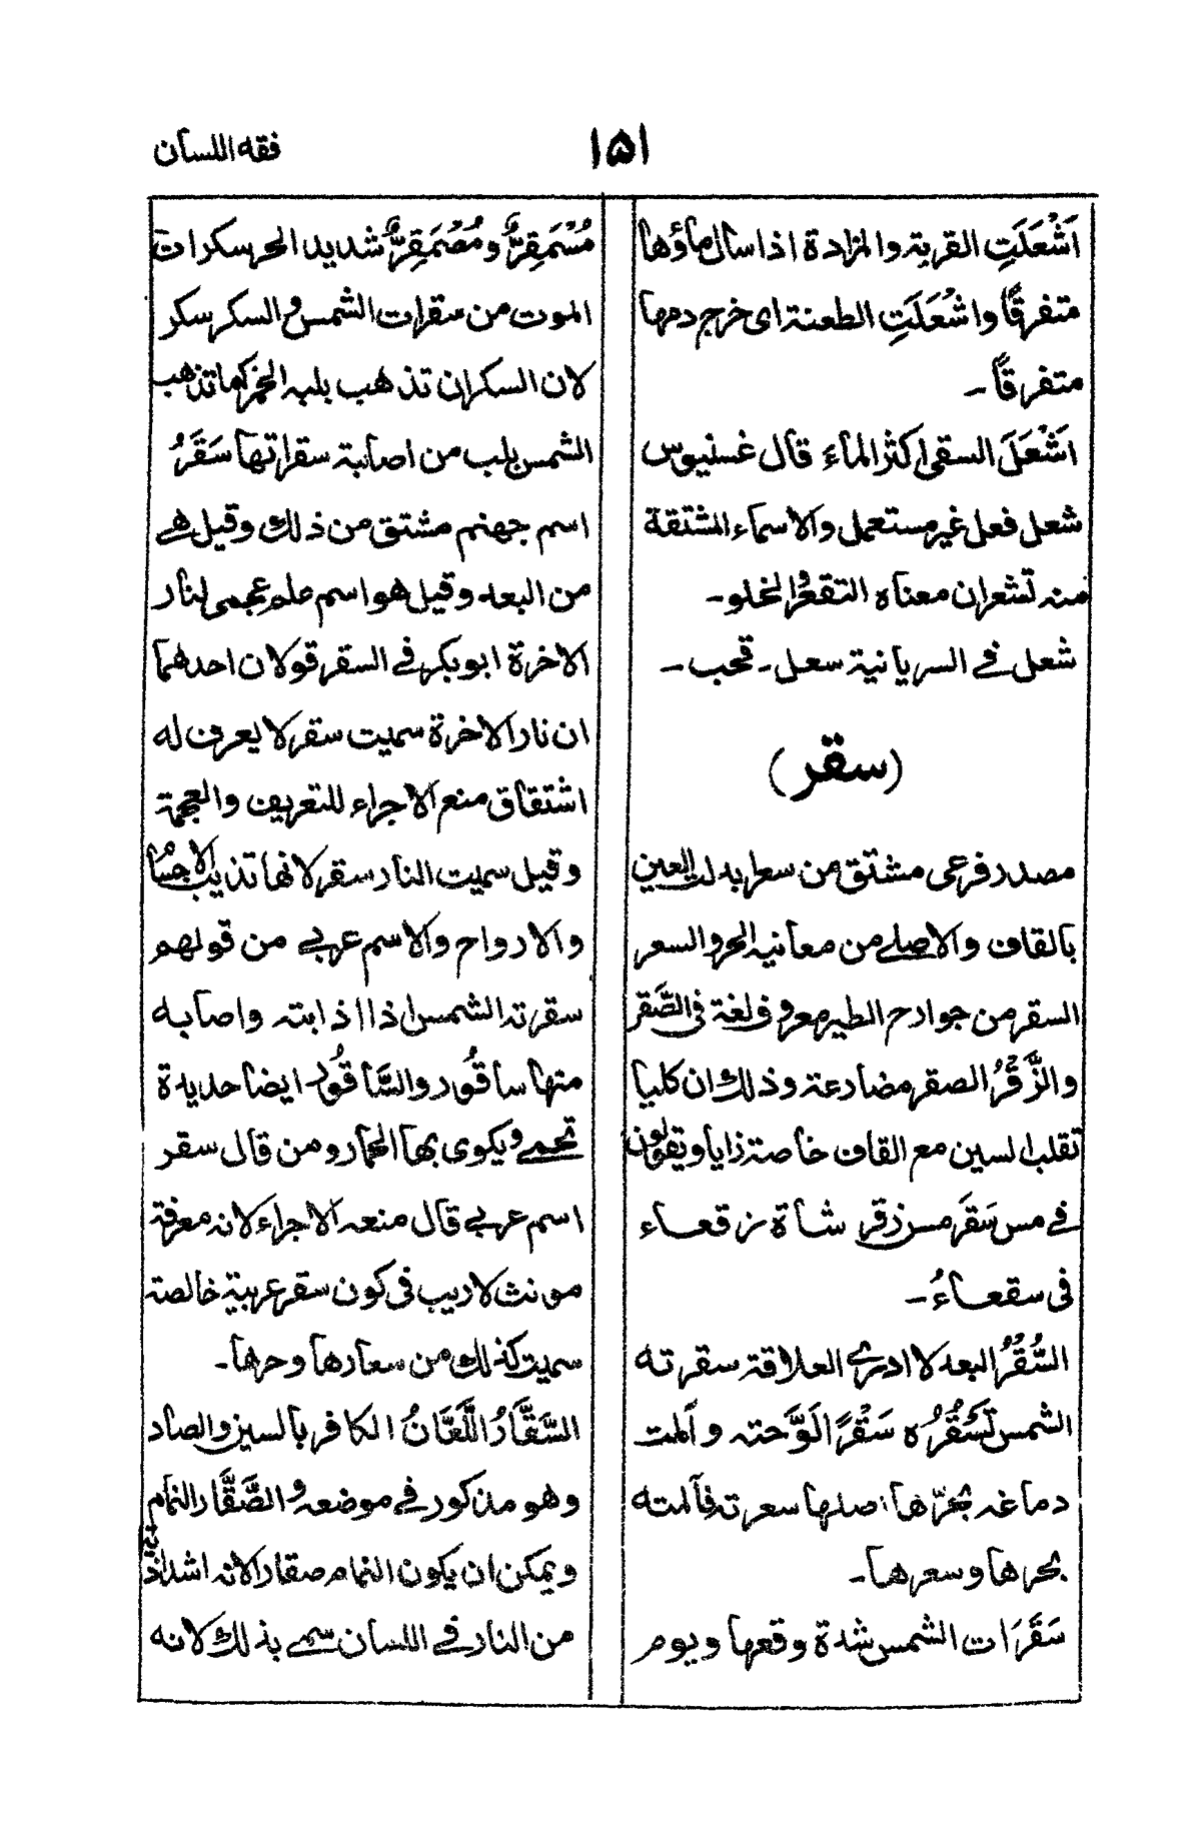 فقه اللسان
۱۵۱
اَشْعَلَتِ القربة والمزادة اذا سال ماؤها
متفرقًا واشْعَلَتِ الطعنة اى خرج دمها
متفرقًا۔
اَشْعَلَ السقى اكثر الماء قال غسنيوس
شعل فعل غير مستعمل والاسماء المشتقة
منه تشعر ان معناه التقعر والخلو۔
شعل فے السريانية سعل۔ قحب۔
(سقر)
مصدر فرعى مشتق من سعر ابدلت العين
بالقاف والاصلے من معانيه الحر والسعر
السقر من جوارح الطير معروف لغة فى الصَّقر
والزَّقْرُ الصقر مضارعة وذلك ان كلبا
تقلب السين مع القاف خاصة زايا ويقولون
فے مس سَقَر مس زقر شاة زقعاء
فى سقعاءُ۔
السُّقْرُ البعد لا ادرى العلاقة سقرته
الشمس تَسْقُرُه سَقْرًا لَوَّحته وآلمت
دماغه بحرّها اصلها سعرته فآلمته
بحرها وسعرها۔
سَقَرَات الشمس شدة وقعها ويوم
مُسْمَقِرٌّ ومُصْمَقِرٌّ شديد الحر سكرات
الموت من سقرات الشمس والسكر سكر
لان السكران تذهب بلبه الخمر كما تذهب
الشمس بلب من اصابته سقراتها سَقَرُ
اسم جهنم مشتق من ذلك وقيل هے
من البعد وقيل هو اسم علم عجمى لنار
الاخرة ابوبكر فے السقر قولان احدهما
ان نار الاخرة سميت سقر لا يعرف له
اشتقاق منع الاجراء للتعريف والعجمة
وقيل سميت النار سقر لانها تذيب الاجسام
والارواح والاسم عربے من قولهم
سقرته الشمس اذا اذابته واصابه
منها ساقُور والسَّاقُور ايضا حديدة
تحمے ويكوى بها الحمار ومن قال سقر
اسم عربے قال منعه الاجراء لانه معرفة
مونث لاريب فى كون سقر عربية خالصة
سميت كذلك من سعارها وحرها۔
السَّقَّارُ اللَّعَّانُ الكافر بالسين والصاد
وهو مذكور فے موضعه والصَّقَّار النمام
ويمكن ان يكون النمام صقارا لانه اشد اذية
من النار فے اللسان سمے بذلك لانه